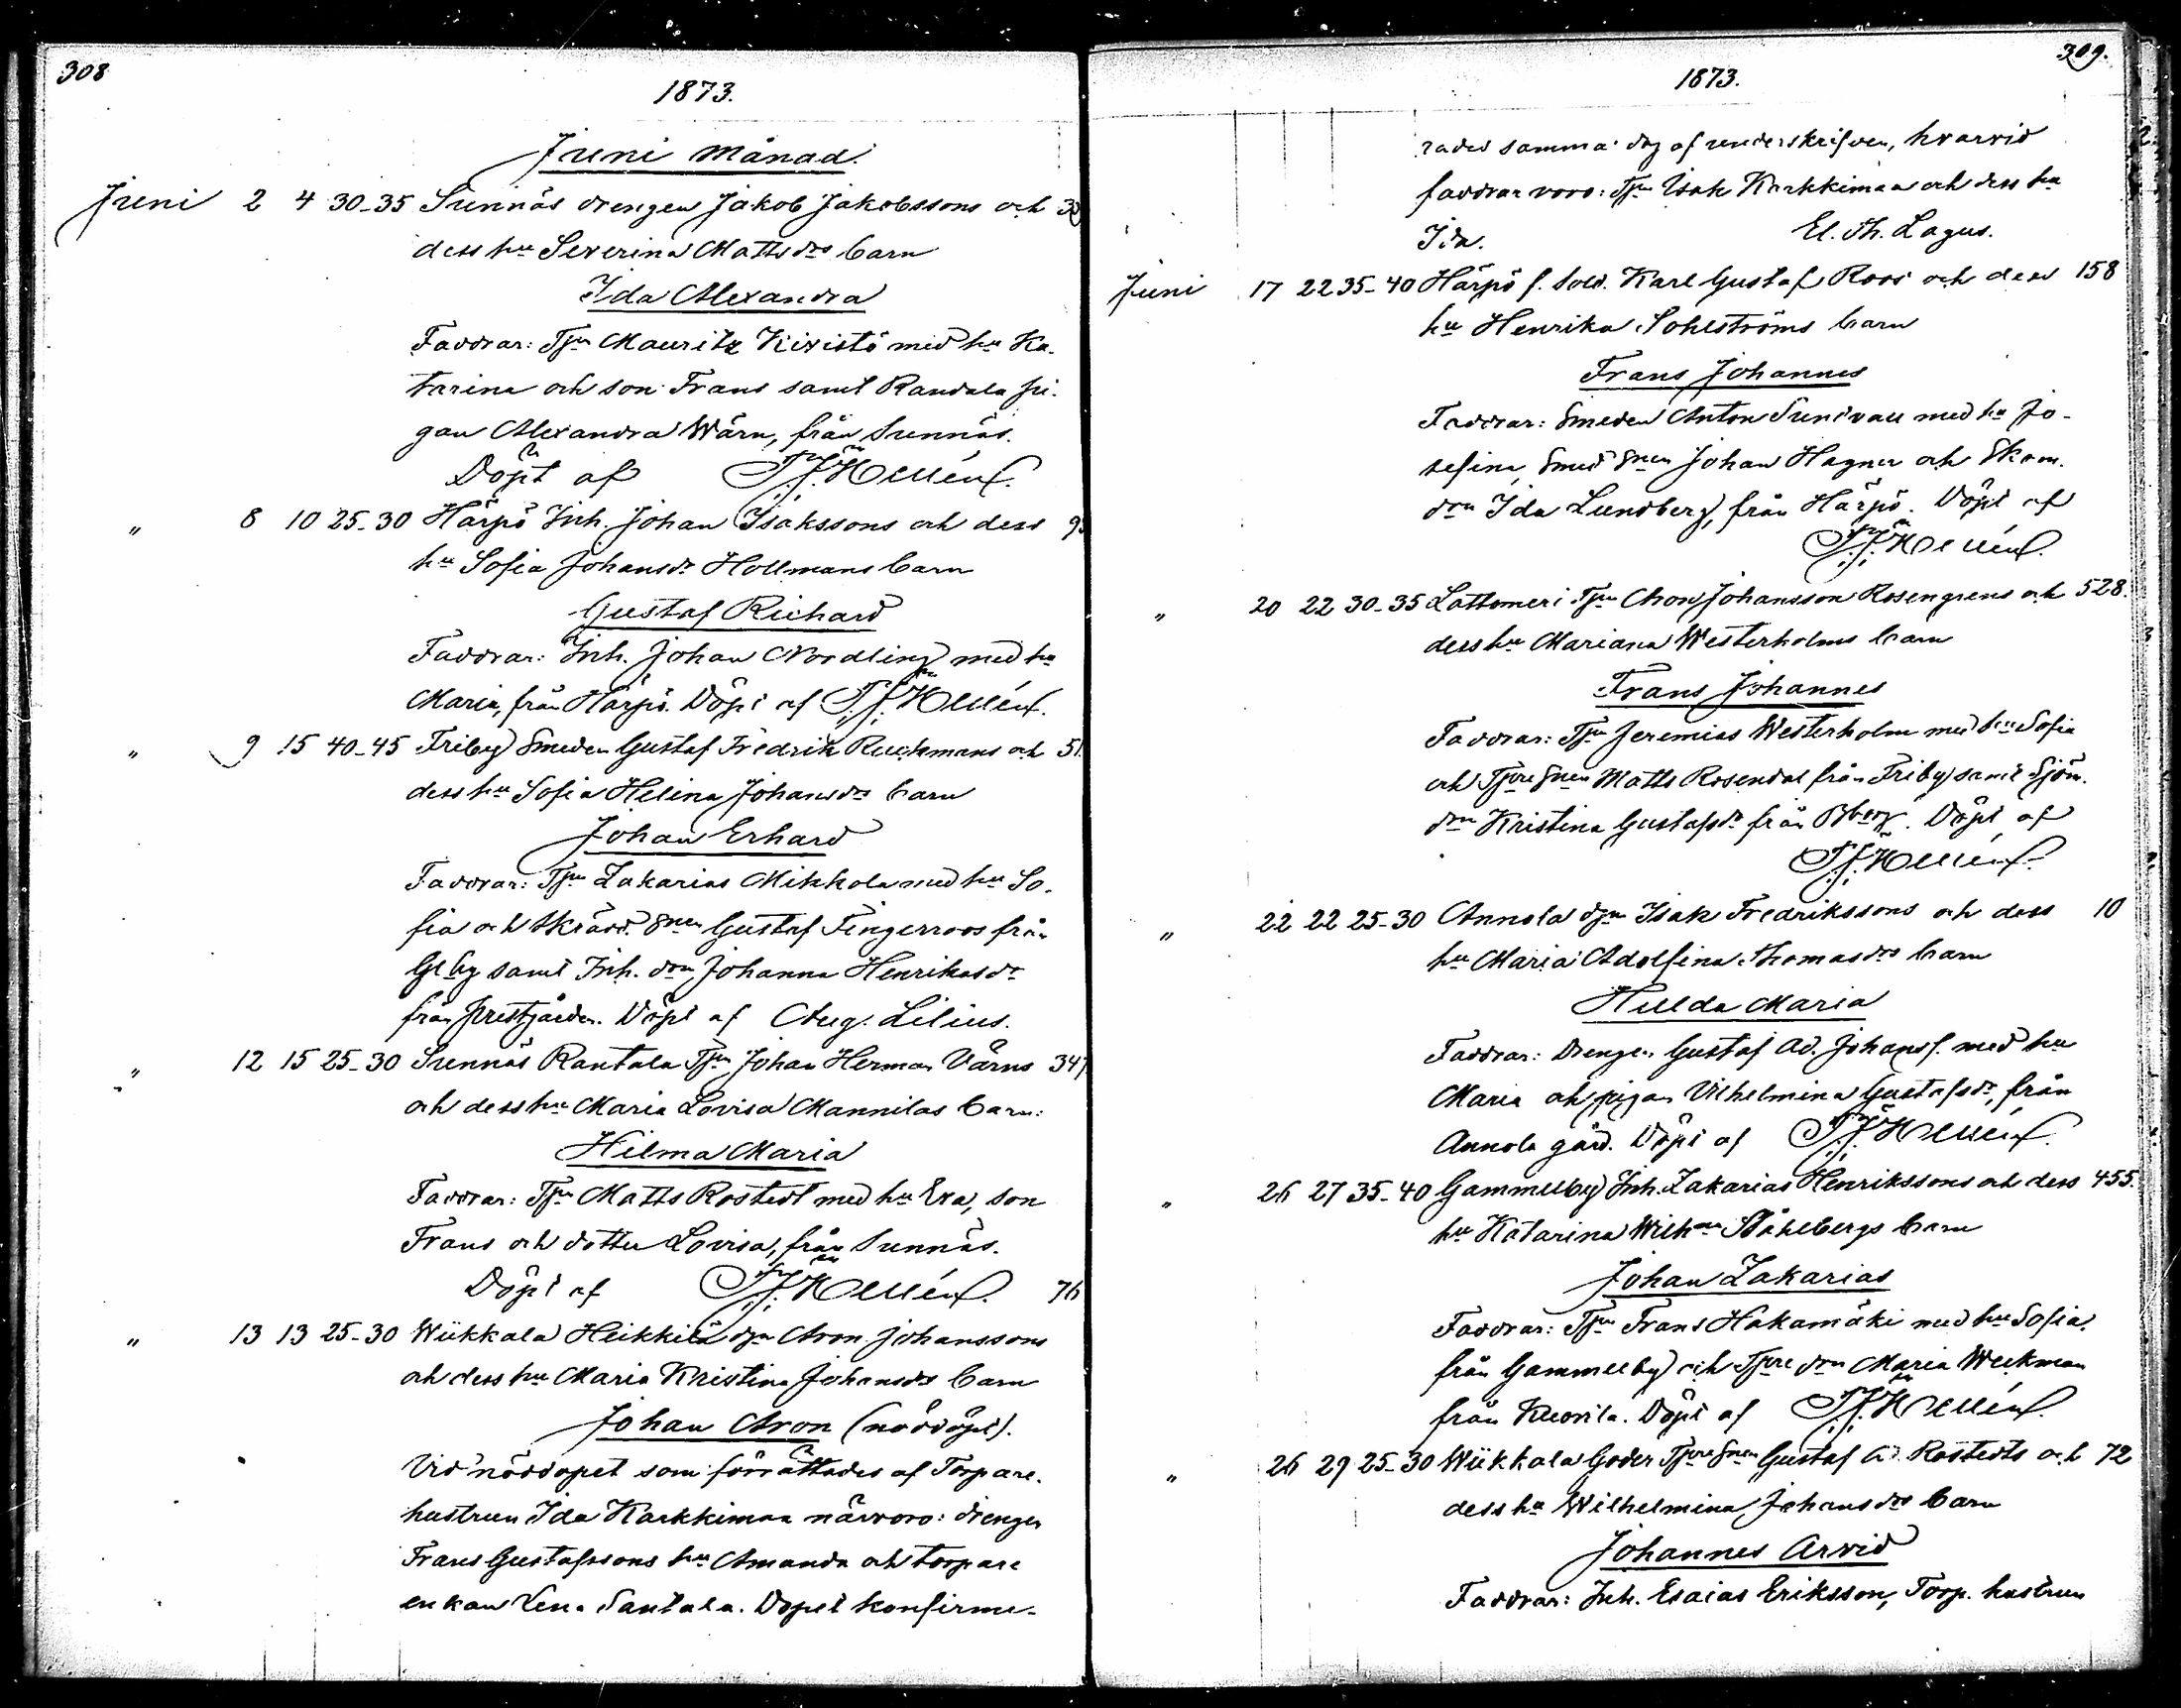 308
1873.
Juni månad.
Juni 2 4 30-35 Sunnäs drengen Jakob Jakobssons och
dess hu Severina Mattsdrs barn
Ida Alexandra
Faddrar: Tpn Mauritz Kivistö med hu Ka-
tarina och son Frans samt Randala pi-
gan Alexandra Wärn, från Sunnäs.
Döpt af
" 8 10 25-30 Härpö Inh. Johan Isakssons och dess
hu Sofia Johansdr Hollmans barn
Gustaf Richard
Faddrar: Inh. Johan Nordling med hu
Maria, från Härpö. Döpt af
" 9 15 40-45 Friby Smeden Gustaf Fredrik och
dess hu Sofia Helina Johansdrs barn
Johan Erhard
Faddrar: Tpn Zakarias Mikkola med hu So-
fia och Skrädd. Snen Gustaf Fingerroos från
Glby samt Inh. drn Johanna Henriksdr
från Prestgården. Döpt af Aug. Lilius.
" 12 15 25-30 Sunnäs Rantala Tpn Johan Herman Värns 347
och dess hu Maria Lovisa Mannilas barn:
Hilma Maria
Faddrar: Tpn Matts Rostedt med hu Eva, son
Frans och dotter Lovisa, från Sunnäs.
Döpt af 76
" 13 13 25-30 Wiikkala Heikkilä dgn Aron Johanssons
och dess hu Maria Kristina Johansdrs barn
Johan Aron (nöddöpt).
Vid nöddopet som förrättades af Torpare-
hustrun Ida Karkkimaa närvoro: drengen
Frans Gustafssons hu Amanda och torpare
enkan Lena Santala. Dopet konfirme-
309.
1873.
rades samma dag af underskrifven, hvarvid
faddrar voro: Tpn Isak Karkkimaa och dess hu
Ida. El. Th. Lagus.
Juni 17 22 35-40 Härpö f. Sold. Karl Gustaf Roos och dess 158
hu Henrika Sohlströms barn
Frans Johannes
Faddrar: Smeden Anton Sundvall med hu Jo-
sefina, Smed Snen Johan Hagner och Skom.
drn Ida Lundberg, från Härpö. Döpt af
" 20 22 30-35 Lattomeri Tpn Aron Johansson Rosengrens och 528.
dess hu Mariana Westerholms barn
Frans Johannes
Faddrar: Tpn Jeremias Westerholm med hu Sofia
och Tpre Snen Matts Rosendal från Friby samt Sjöm.
drn Kristina Gustafsdr från Bborg. Döpt af
" 22 22 25-30 Annola dgn Isak Fredrikssons och dess 10
hu Maria Adolfina Thomasdrs barn
Hulda Maria
Faddrar: Drengen Gustaf Ad. Johanss. med hu
Maria och pigan Vilhelmina Gustafsdr, från
Annola gård. Döpt af
" 26 27 35-40 Gammelby Inh. Zakarias Henrikssons och dess 455.
hu Katarina Wilhna Ståhlbergs barn
Johan Zakarias
Faddrar: Tpn Frans Hakamäki med hu Sofia
från Gammelby och Tpre drn Maria Weckman
från Kuorila. Döpt af
" 26 29 25-30 Wiikkala Goder Tpre Snen Gustaf Ad. Rostedts och 72
dess hu Wilhelmina Johansdrs barn
Johannes Arvid
Faddrar: Inh. Esaias Eriksson, Torp. hustrun